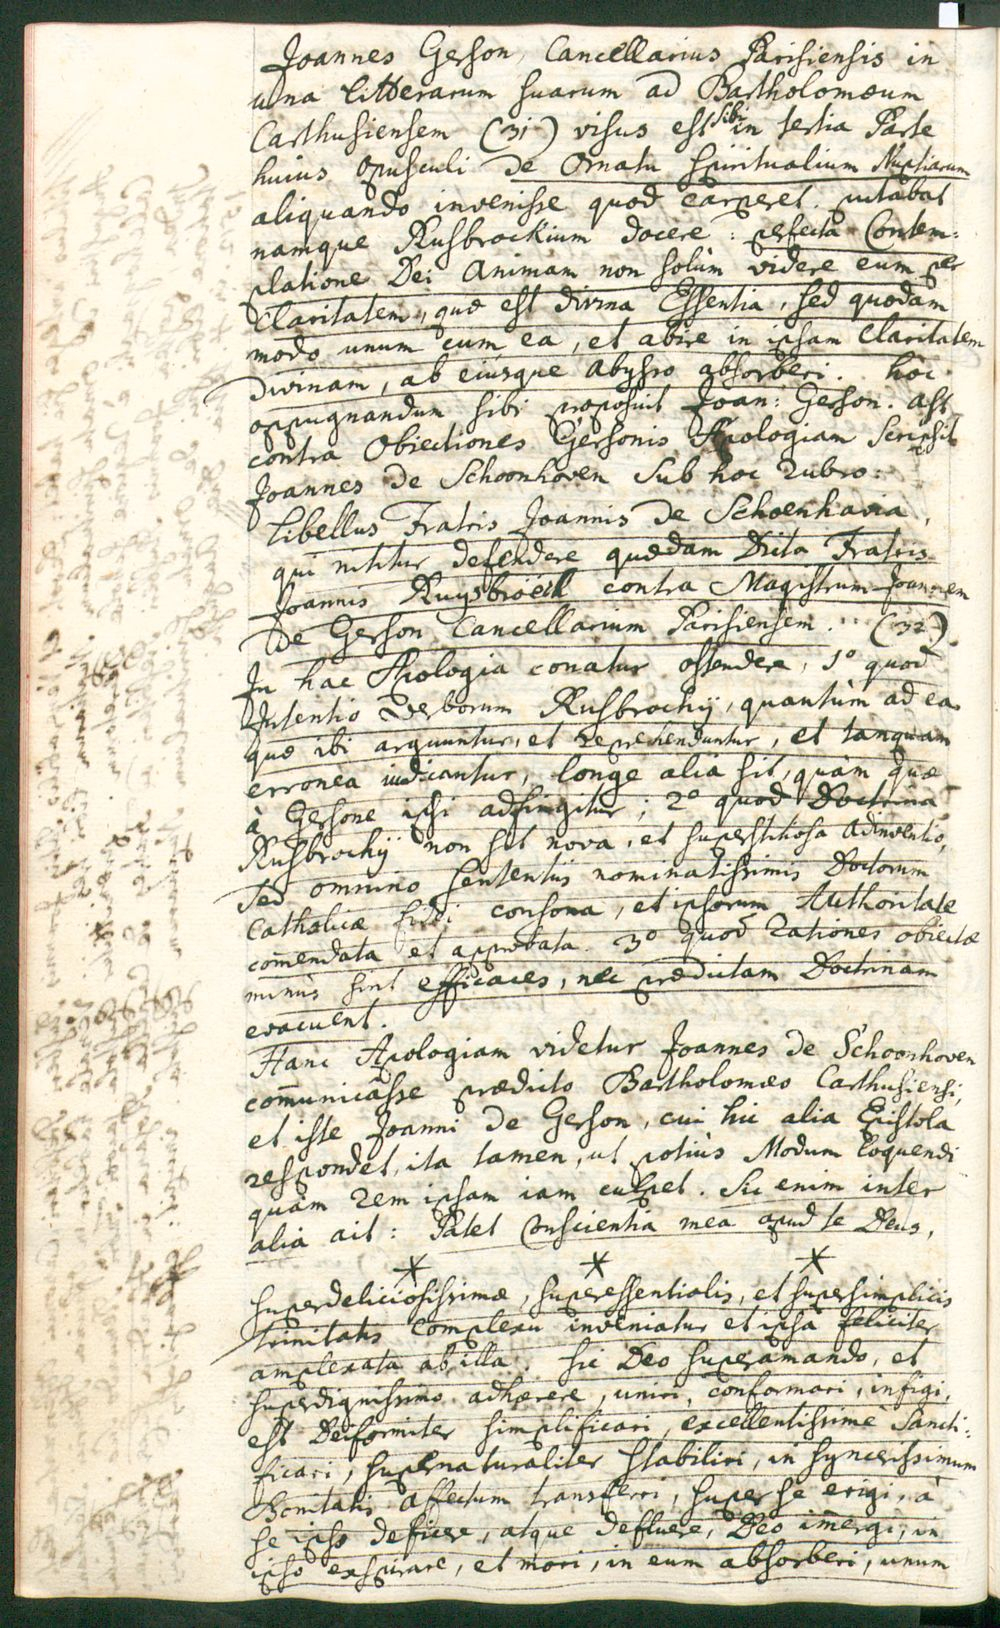 Joannes Gerson, Cancellarius Parisiensis in
una litterarum suarum ad Bartholomæum
Carthusiensem (31) visus est sibi in tertia Parte
huius opusculi de Ornatu spiritualium Nuptiarum
aliquando invenisse quod carperet. putabat
namque Rusbrockium docere: perfecta Contem=
platione Dei Animam non solùm videre eum per
Claritatem, quæ est divina Essentia, sed quodam
modo unum cum ea, et abire in ipsam Claritatem
Divinam, ab eiusque Abysso absorberi. hoc
oppugnandum sibi proposuit Joan: Gerson. ast
contra Obiectiones Gersonis Apologiam Scripsit
Joannes de Schoonhoven Sub hoc rubro:
Libellus Fratris Joannis de Schoenhavia,
qui nititur defendere quædam Dicta Fratris
Joannis Ruysbroeck contra Magistrum Joannem
de Gerson Cancellarium Parisiensem. (32)
In hac Apologia conatur ostendere, 1º quod
Intentio verborum Rusbrochij, quantùm ad ea
quæ ibi arguuntur, et reprehenduntur, et tanquam
erronea iudicantur, longe alia sit, quàm quæ
à Gersone ipsi adfingitur; 2º quod Doctrina
Rusbrochij non sit nova, et superstitiosa adinventio,
sed omnino sententiis nominatissimis Doctorum
Catholicæ fidei consona, et ipsorum Authoritate
com̄endata et approbata. 3º quod rationes obiectæ
minùs sint efficaces, nec prædictam Doctrinam
evacuent.
Hanc Apologiam videtur Joannes de Schoonhoven
com̄unicâsse prædicto Bartholomæo Carthusiensi,
et iste Joanni de Gerson, cui hic alia Epistola
respondet, ita tamen, ut potiùs Modum loquendi
quàm rem ipsam iam culpet. Sic enim inter
alia ait: Patet Conscientia mea apud te Deus,
* * *
superdeliciosissimæ, superessentialis, et supersimplicis
trinitatis Complexu inveniatur et ipsa feliciter
amplexata ab illa. sic Deo superamando, et
superdignissimo adhærere, uniri, conformari, infigi,
est Deiformiter simplificari, excellentissimè Sancti=
ficari, supernaturaliter stabiliri, in syncerissimum
Bonitatis affectum transferri, super se erigi, à
se ipso deficere, atque defluere, Deo im̄ergi, in
ipso exspirare, et mori, in eum absorberi, unum